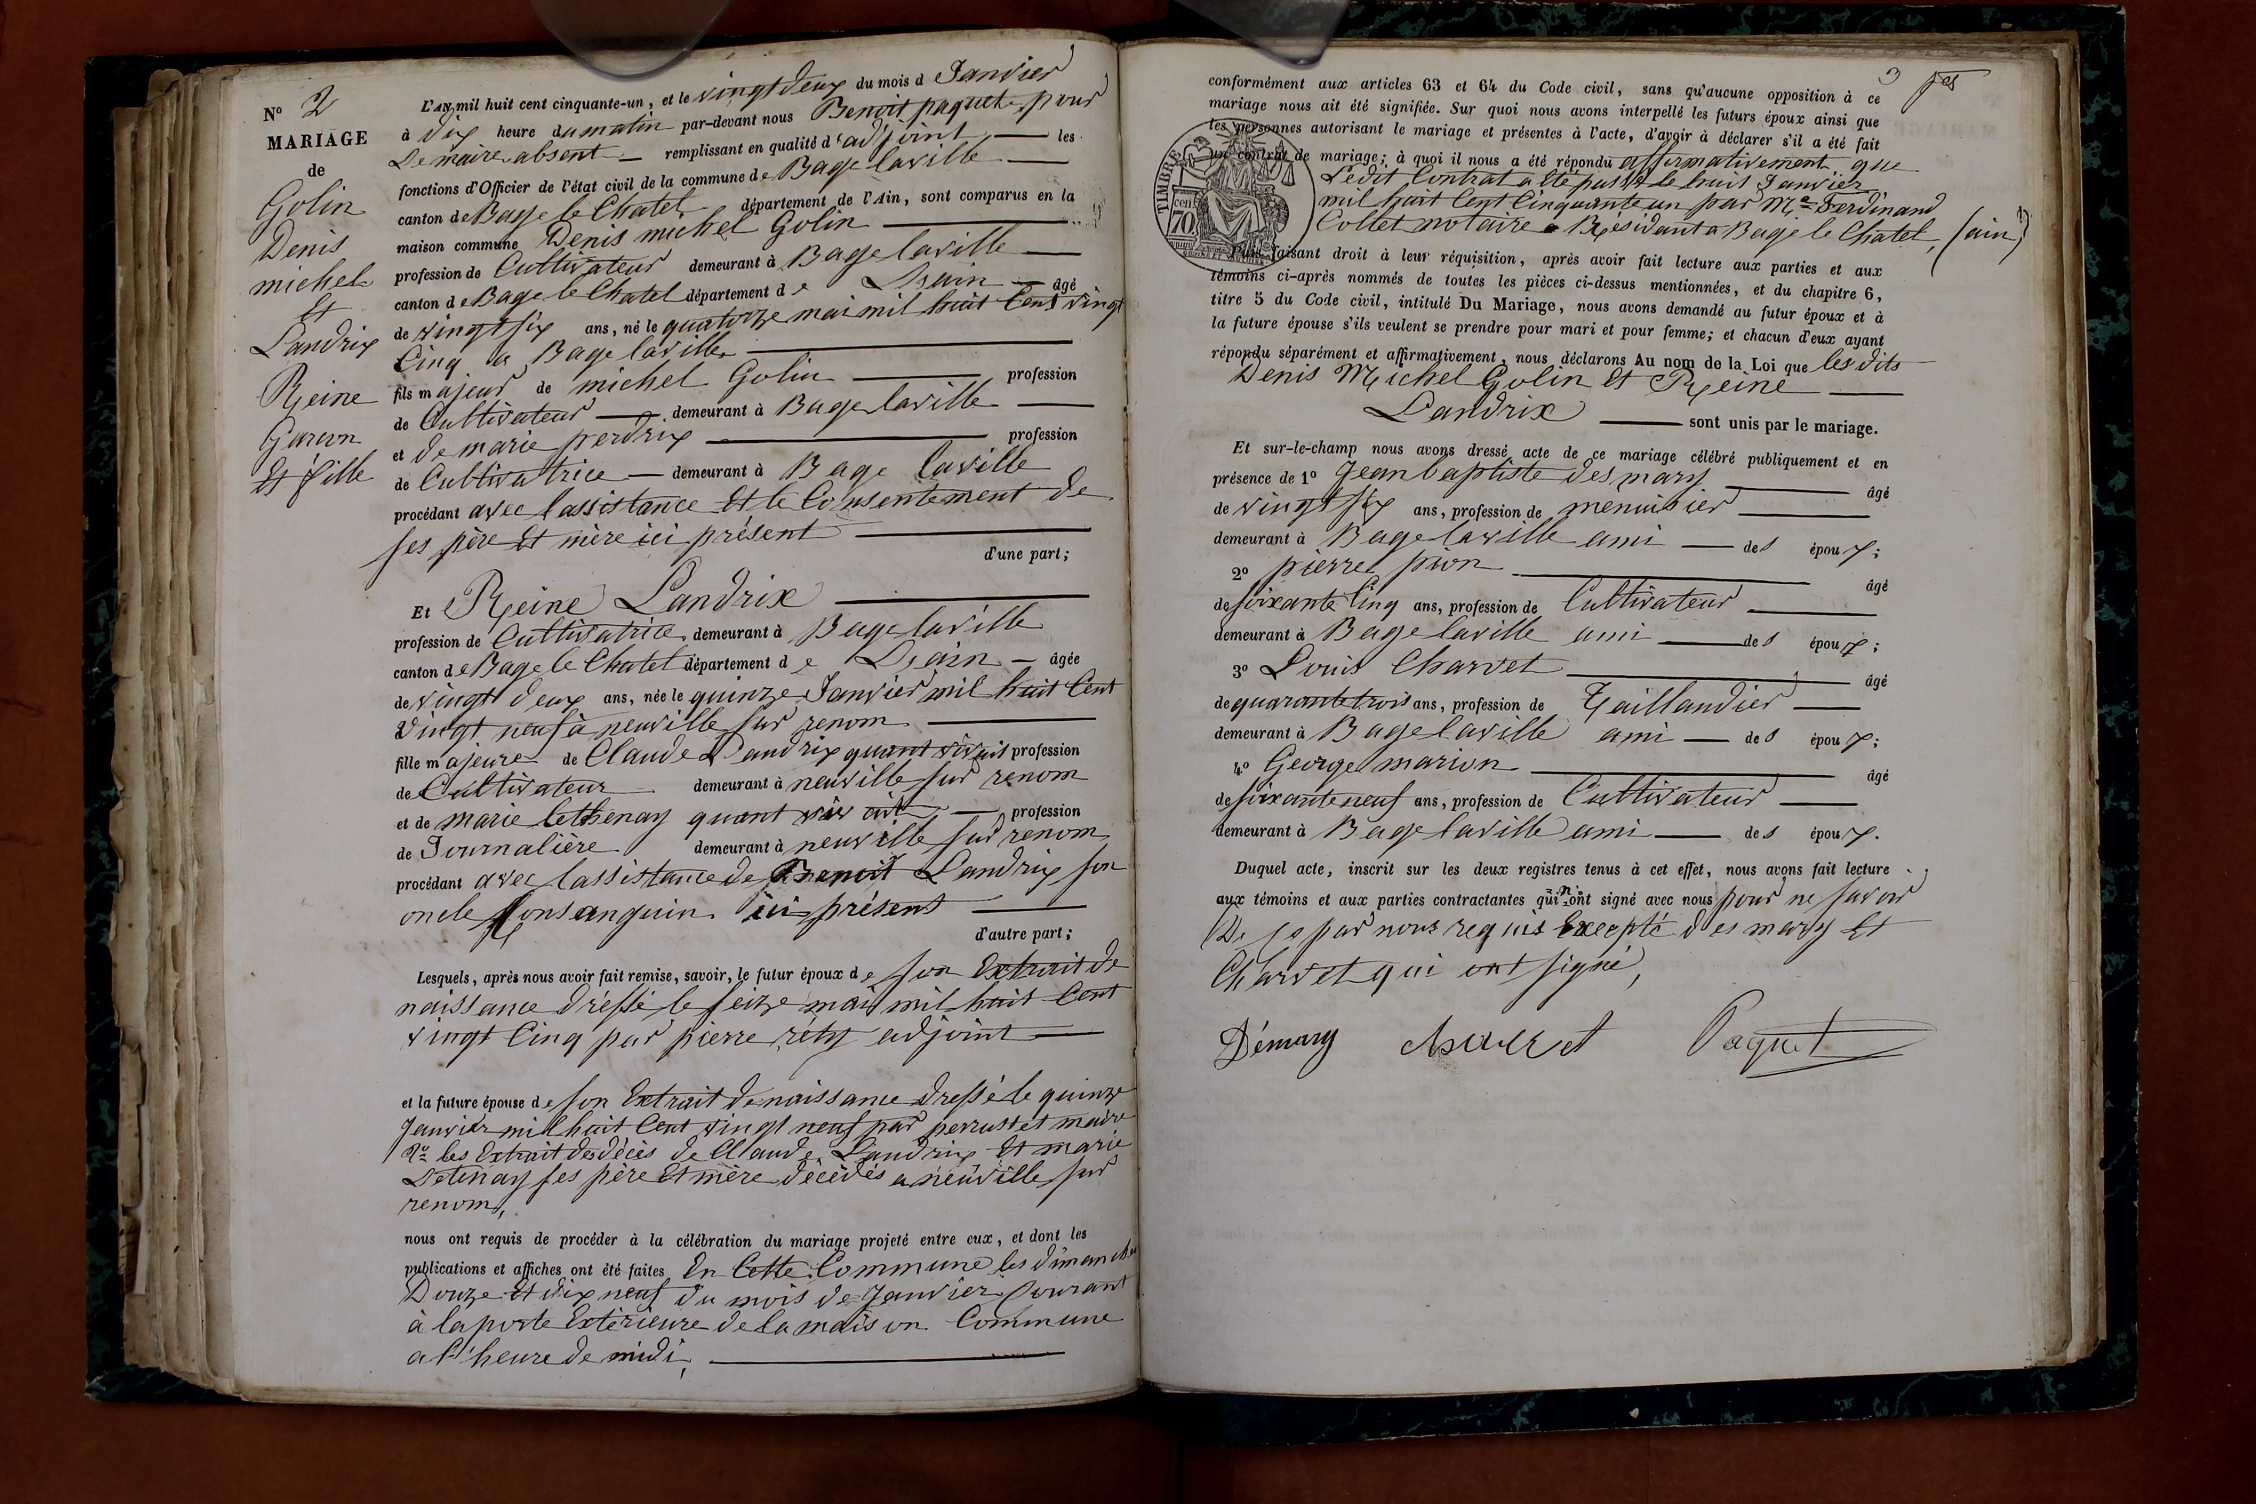 N° 2
MARIAGE
de
Golin
Denis
michel
et
Landrix
Reine
Garcon
et fille
L'AN mil huit cent cinquante-un, et le vingt deux du mois d Janvier
à dix heure du matin par-devant nous Benoit paquet pour
Le maire absent remplissant en qualité d'adjoint les
fonctions d'Officier de l'état civil de la commune de Bage laville
canton de Bage le Chatel département de l'Ain, sont comparus en la
maison commune Denis michel Golin
profession de Cultivateur demeurant à Bage laville
canton de Bage le Chatel département de Lain âgé
de vingt six ans, né le quatorze mai mil huit Cent vingt
Cinq a Bage laville
fils majeur de michel Golin profession
de Cultivateur demeurant à Bage laville
et de marie perdrix profession
de Cultivatrice demeurant à Bage laville
procédant avec lassistance et le Consentement de
ses père et mère ici présent
d'une part;
Et Reine Landrix
profession de Cultivatrice demeurant à Bage laville
canton de Bage le Chatel département de Leain âgée
de vingt deux ans, née le quinze Janvier mil huit Cent
vingt neuf à neuville sur renom
fille majeure de Claude Landrix quant vivait profession
de Cultivateur demeurant à neuville sur renom
et de marie lethenay quant vivait profession
de Journalière demeurant à neuville sur renom
procédant avec lassistance de Benoit Landrix son
oncle Consanguin ici présent
d'autre part;
Lesquels, après nous avoir fait remise, savoir, le futur époux de son Extrait de
naissance dréssé le seize mai mil huit Cent
vingt Cinq par pierre réty adjoint
et la future épouse de son Extrait de naissance dressé le quinze
Janvier mil huit Cent vingt neuf par perrustet maire
les Extrait de décès de Claude Landrix et marie
Letenay ses père et mère décédés a neuville sur
renom,
nous ont requis de procéder à la célébration du mariage projeté entre eux, et dont les
publications et affiches ont été faites En Cette Commune les dimanche
Douze et dix neuf du mois de Janvier Courant
à la porte Extérieure de la maison Commune
a l'heure de midi,
3
conformément aux articles 63 et 64 du Code civil, sans qu'aucune opposition à ce
mariage nous ait été signifiée. Sur quoi nous avons interpellé les futurs époux ainsi que
les personnes autorisant le mariage et présentes à l'acte, d'avoir à déclarer s'il a été fait
un contrat de mariage; à quoi il nous a été répondu affirmativement que
Ledit Contrat a été passé le huit Janvier
mil huit Cent Cinquante un par Me Ferdinand
Collet notaire Résidant a Bagé le Chatel, (ain)
TIMBRE
cen
70
Puis, faisant droit à leur réquisition, après avoir fait lecture aux parties et aux
témoins ci-après nommés de toutes les pièces ci-dessus mentionnées, et du chapitre 6,
titre 5 du Code civil, intitulé Du Mariage, nous avons demandé au futur époux et à
la future épouse s'ils veulent se prendre pour mari et pour femme; et chacun d'eux ayant
répondu séparément et affirmativement, nous déclarons Au nom de la Loi que les dits
Denis Michel Golin et Reine
Landrix sont unis par le mariage.
Et sur-le-champ nous avons dressé acte de ce mariage célébré publiquement et en
présence de 1° Jean baptiste desmary âgé
de vingt six ans, profession de menuisier
demeurant à Bage laville ami des époux;
2° pierre pion âgé
de soixante Cinq ans, profession de Cultivateur
demeurant à Bage laville ami des époux;
3° Louis Charvet âgé
de quarante trois ans, profession de Taillandier
demeurant à Bage laville ami des époux;
4° George marion âgé
de soixante neuf ans, profession de Cultivateur
demeurant à Bage laville ami des époux.
Duquel acte, inscrit sur les deux registres tenus à cet effet, nous avons fait lecture
aux témoins et aux parties contractantes qui n'ont signé avec nous pour ne savoir
De ce par nous requis Excepté desmary et
Charvet qui ont signé,
Démary Charvet Paquet